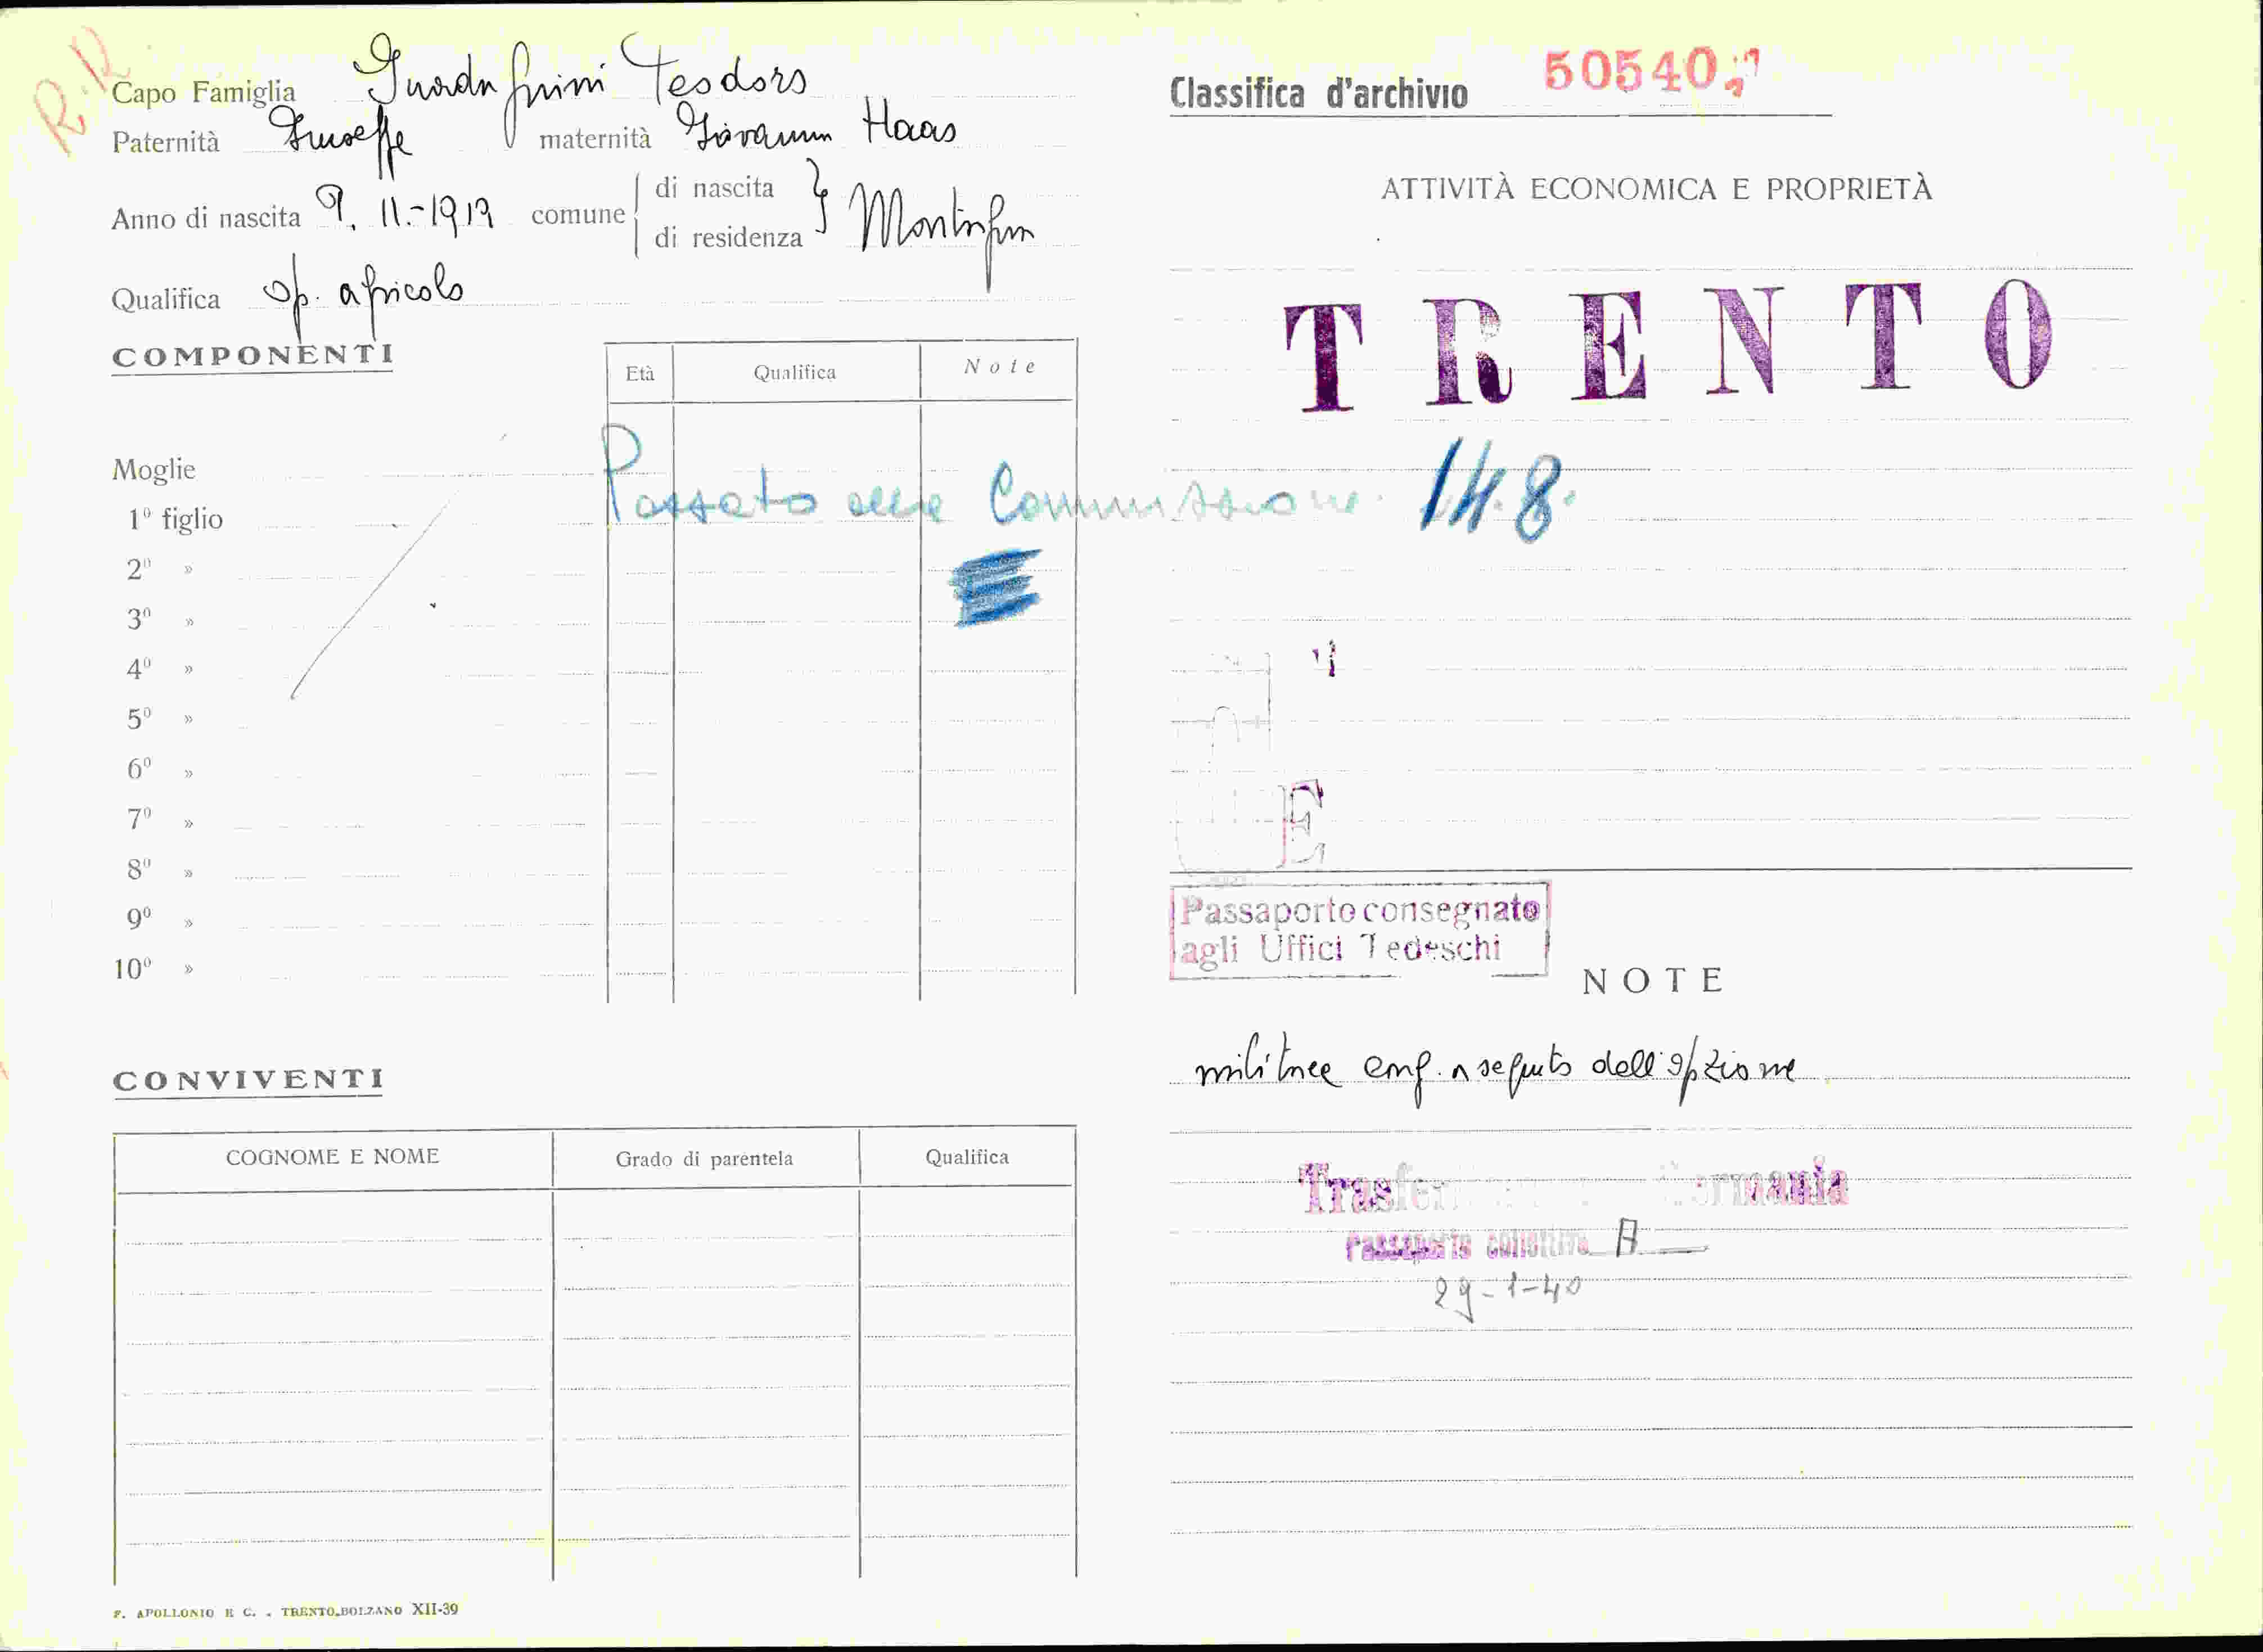 R.D
Capo Famiglia Guadagnini Teodoro
Paternità Giuseppe maternità Giovanna Haas
Anno di nascita 9. 11.-1919 comune di nascita di residenza Montagna
Qualifica op. agricolo
COMPONENTI
Età Qualifica Note
Moglie
1º figlio
2º »
3º »
4º »
5º »
6º »
7º »
8º »
9º »
10º »
Passato alla Commissione 148.
CONVIVENTI
COGNOME E NOME Grado di parentela Qualifica
F. APOLLONIO E C. - TRENTO-BOLZANO XII-39
Classifica d'archivio 50540
ATTIVITÀ ECONOMICA E PROPRIETÀ
TRENTO
E
Passaporto consegnato
agli Uffici Tedeschi
NOTE
militare a seguito dell'opzione
Passaporto collettivo A
29-1-40